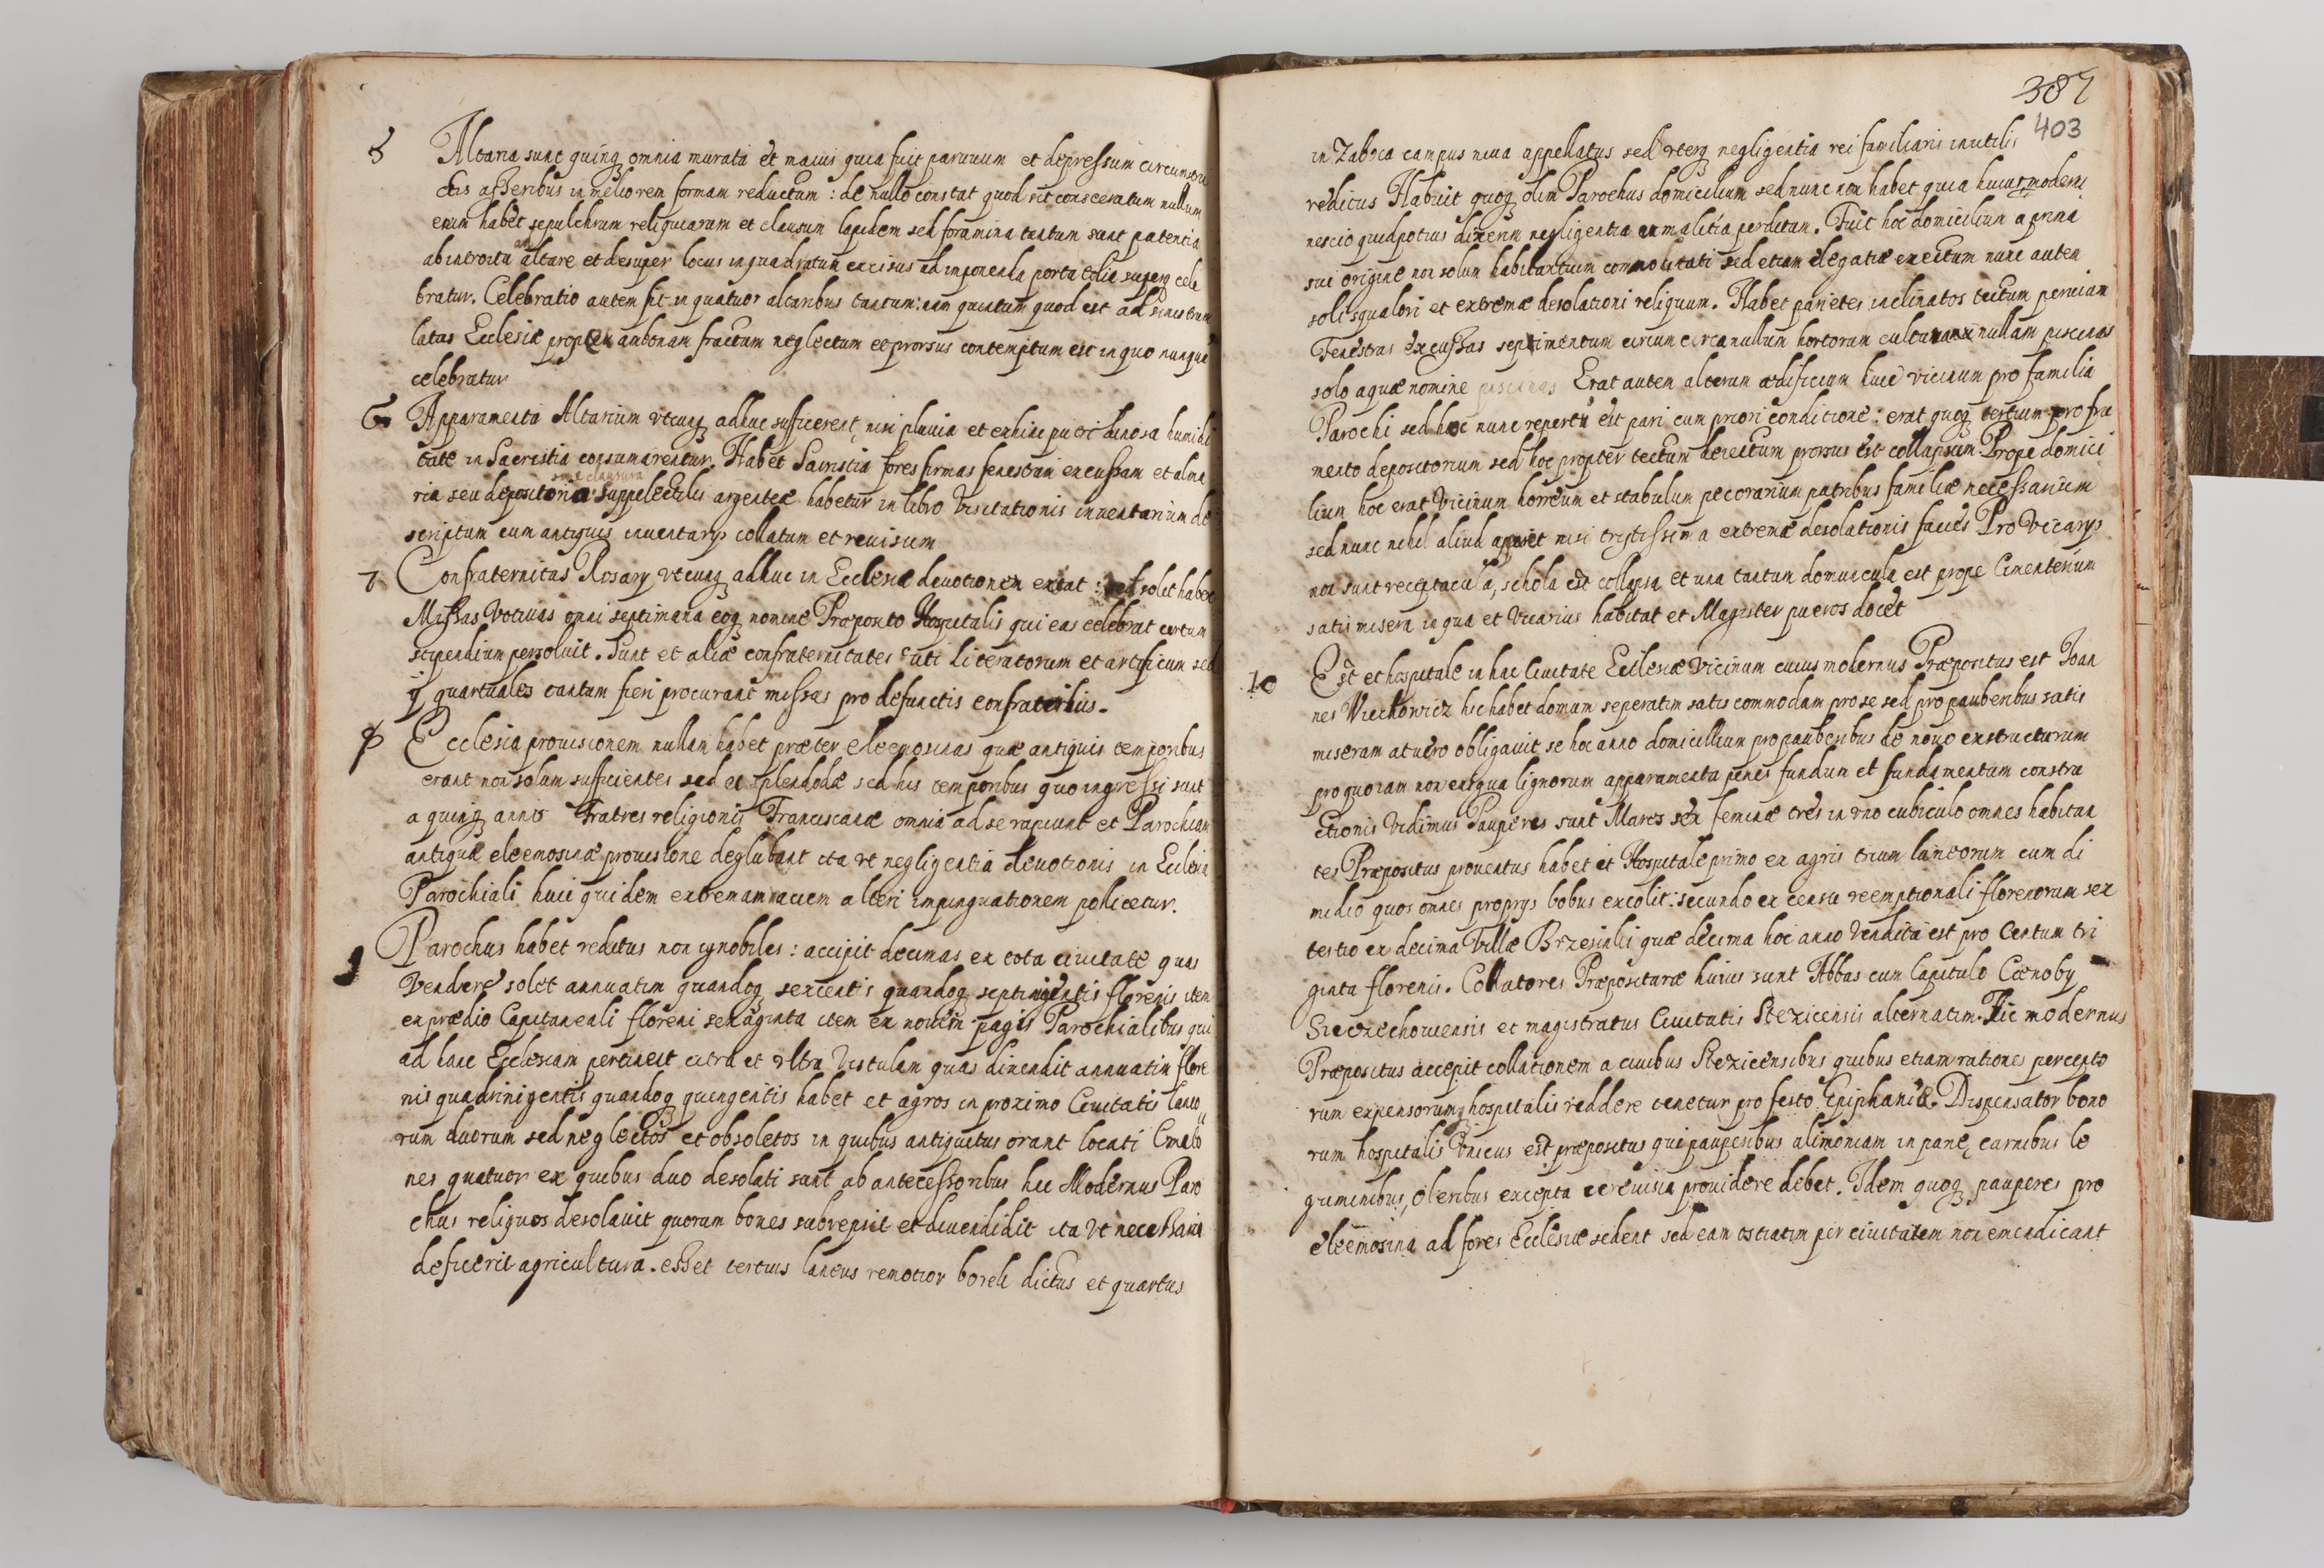 5 Altaria sunt quinq omnia murata et maius quia fuit paruum et depressum circumdu
ctis asseribus in meliorem formam reductum : de nullo constat quod sit consecratum nullum
enim habet sepulchrum reliquiarum et clausum lapidem sed foramina tantum sunt patentia
ab introitu ad altare et desuper locus in quadratum excisus ad imponenda portatilia superq cele
bratur. Celebratio autem fit in quatuor altaribus tantum: nam quintum quod est ad sinistrum
latus Ecclesiæ propter ambonam fractum neglectum et prorsus contemptum est in quo nunqua
celebratur
6 Apparamenta Altarium vtcunq adhuc sufficerent, nisi pluuia et exhinc putridinosa humidi
tate in Sacristia consumarentur. Habet Sacristia fores firmas fenestram excussam et alma
sine clausura
ria seu depositoria suppellectilis argenteæ habetur in libro Visitationis inuentarium de
scriptum cum antiquis inuentarijs collatum et reuisum
7 Confraternitas Rosarij vtcunq adhuc in Ecclesia deuotionem excitat : solet habere
Missas Votiuas omni septimana eoq nomine Præposito Hospitalis qui eas celebrat certum
stipendium persoluit. Sunt et aliæ confraternitates vti Literatorum et artificum sed
ij quartuales tantum fieri procurant missas pro defunctis confratribus.
8 Ecclesia prouisionem nullam habet præter eleemosinas quæ antiquis temporibus
erant non solum sufficientes sed et splendidæ sed his temporibus quo ingressi sunt
a quinq annis Fratres religionis Franciscanæ omnia ad se rapiunt et Parochiam
antiqua eleemosinæ prouisione deglubant ita vt negligentia deuotionis in Ecclesia
Parochiali huic quidem extremam maciem alteri impinguationem polliceatur.
9 Parochus habet reditus non ignobiles : accipit decimas ex tota ciuitate quas
Vendere solet annuatim quandoq sexcentis quandoq septingentis florenis item
ex prædio Capitaneali floreni sexaginta item ex nouem pagis Parochialibus qui
ad hanc Ecclesiam pertinent citra et vltra Vistulam quas diuendit annuatim flore
nis quadringentis quandoq quingentis habet et agros in proximo Ciuitatis laneo
rum duorum sed neglectos et obsoletos in quibus antiquitus erant locati Cmeto
nes quatuor ex quibus duo desolati sunt ab antecessoribus hic Modernus Paro
chus reliquos desolauit quorum boues subrepsit et diuendidit ita vt necessaria
defuerit agricultura. esset tertius laneus remotior boreli dictus et quartus
387
403
in Zabrca campus niua appellatus sed vterq negligentia rei familiaris inutilis
reditus Habuit quoq olim Parochus domicilium sed nunc non habet quia huius moderni
nescio quid potius dixerim negligentia an malitia perditum. Fuit hoc domicilium a prima
sui origine non solum habitantium commoditati sed etiam elegatiæ erectum nunc autem
soli squalori et extremæ desolationi relictum. Habet parietes inclinatos tectum
Fenestras excussas septimentum circum circa nullum hortorum culturam nullam piscinas
solo aquæ nomine piscinas Erat autem alterum ædificium huic vicinum pro familia
Parochi sed hoc nunc repertu est pari cum priori conditione : erat quoq tertium pro fru
mento depositorium sed hoc propter tectum deiectum prorsus est collapsum Prope domici
lium hoc erat Vicinum horeum et stabulum pecorarium patribus familiæ necessarium
sed nunc nihil aliud apparet nisi tristissima extremæ desolationis facies Pro Vicarijs
non sunt receptacula, schola est collapsa et una tantum domuncula est prope Cimenterium
satis misera in qua et Vicarius habitat et Magister pueros docet
10 Est et hospitale in hac Ciuitate Ecclesiæ Vicinum cuius modernus Præpositus est Ioan
nes Wiechowicz hic habet domum seperatim satis commodam pro se sed pro pauberibus satis
miseram at vero obligauit se hoc anno domicilium pro pauberibus de nouo exstructurum
pro quo iam non exigua lignorum apparamenta penes fundum et fundamentum constru
ctionis Vidimus Pauperes sunt Mares sex feminæ tres in vno cubiculo omnes habitan
tes Præpositus prouentus habet et Hospitale primo ex agris trium laneorum cum di
midio quos omnes proprijs bobus excolit : secundo ex censu reemptionali florenorum sex
tertio ex decima Villæ Brzesinki quæ decima hoc anno Vendita est pro Centum tri
ginta florenis. Collatores Præposituræ huius sunt Abbas cum Capitulo Cœnobij
Sieciechouiensis et magistratus Ciuitatis Stezicensis alternatim. Hic modernus
Præpositus accepit collationem a ciuibus Stezicensibus quibus etiam rationes percepto
rum expensorumq hospitalis reddere tenetur pro festo Epiphaniæ. Dispensator bono
rum hospitalis Vnicus est præpositus qui pauperibus alimoniam in pane, carnibus le
guminibus, oleribus excepta cereuisia prouidere debet. Idem quoq pauperes pro
eleemosina ad fores Ecclesiæ sedent sed eam ostiatim per ciuitatem non emendicant